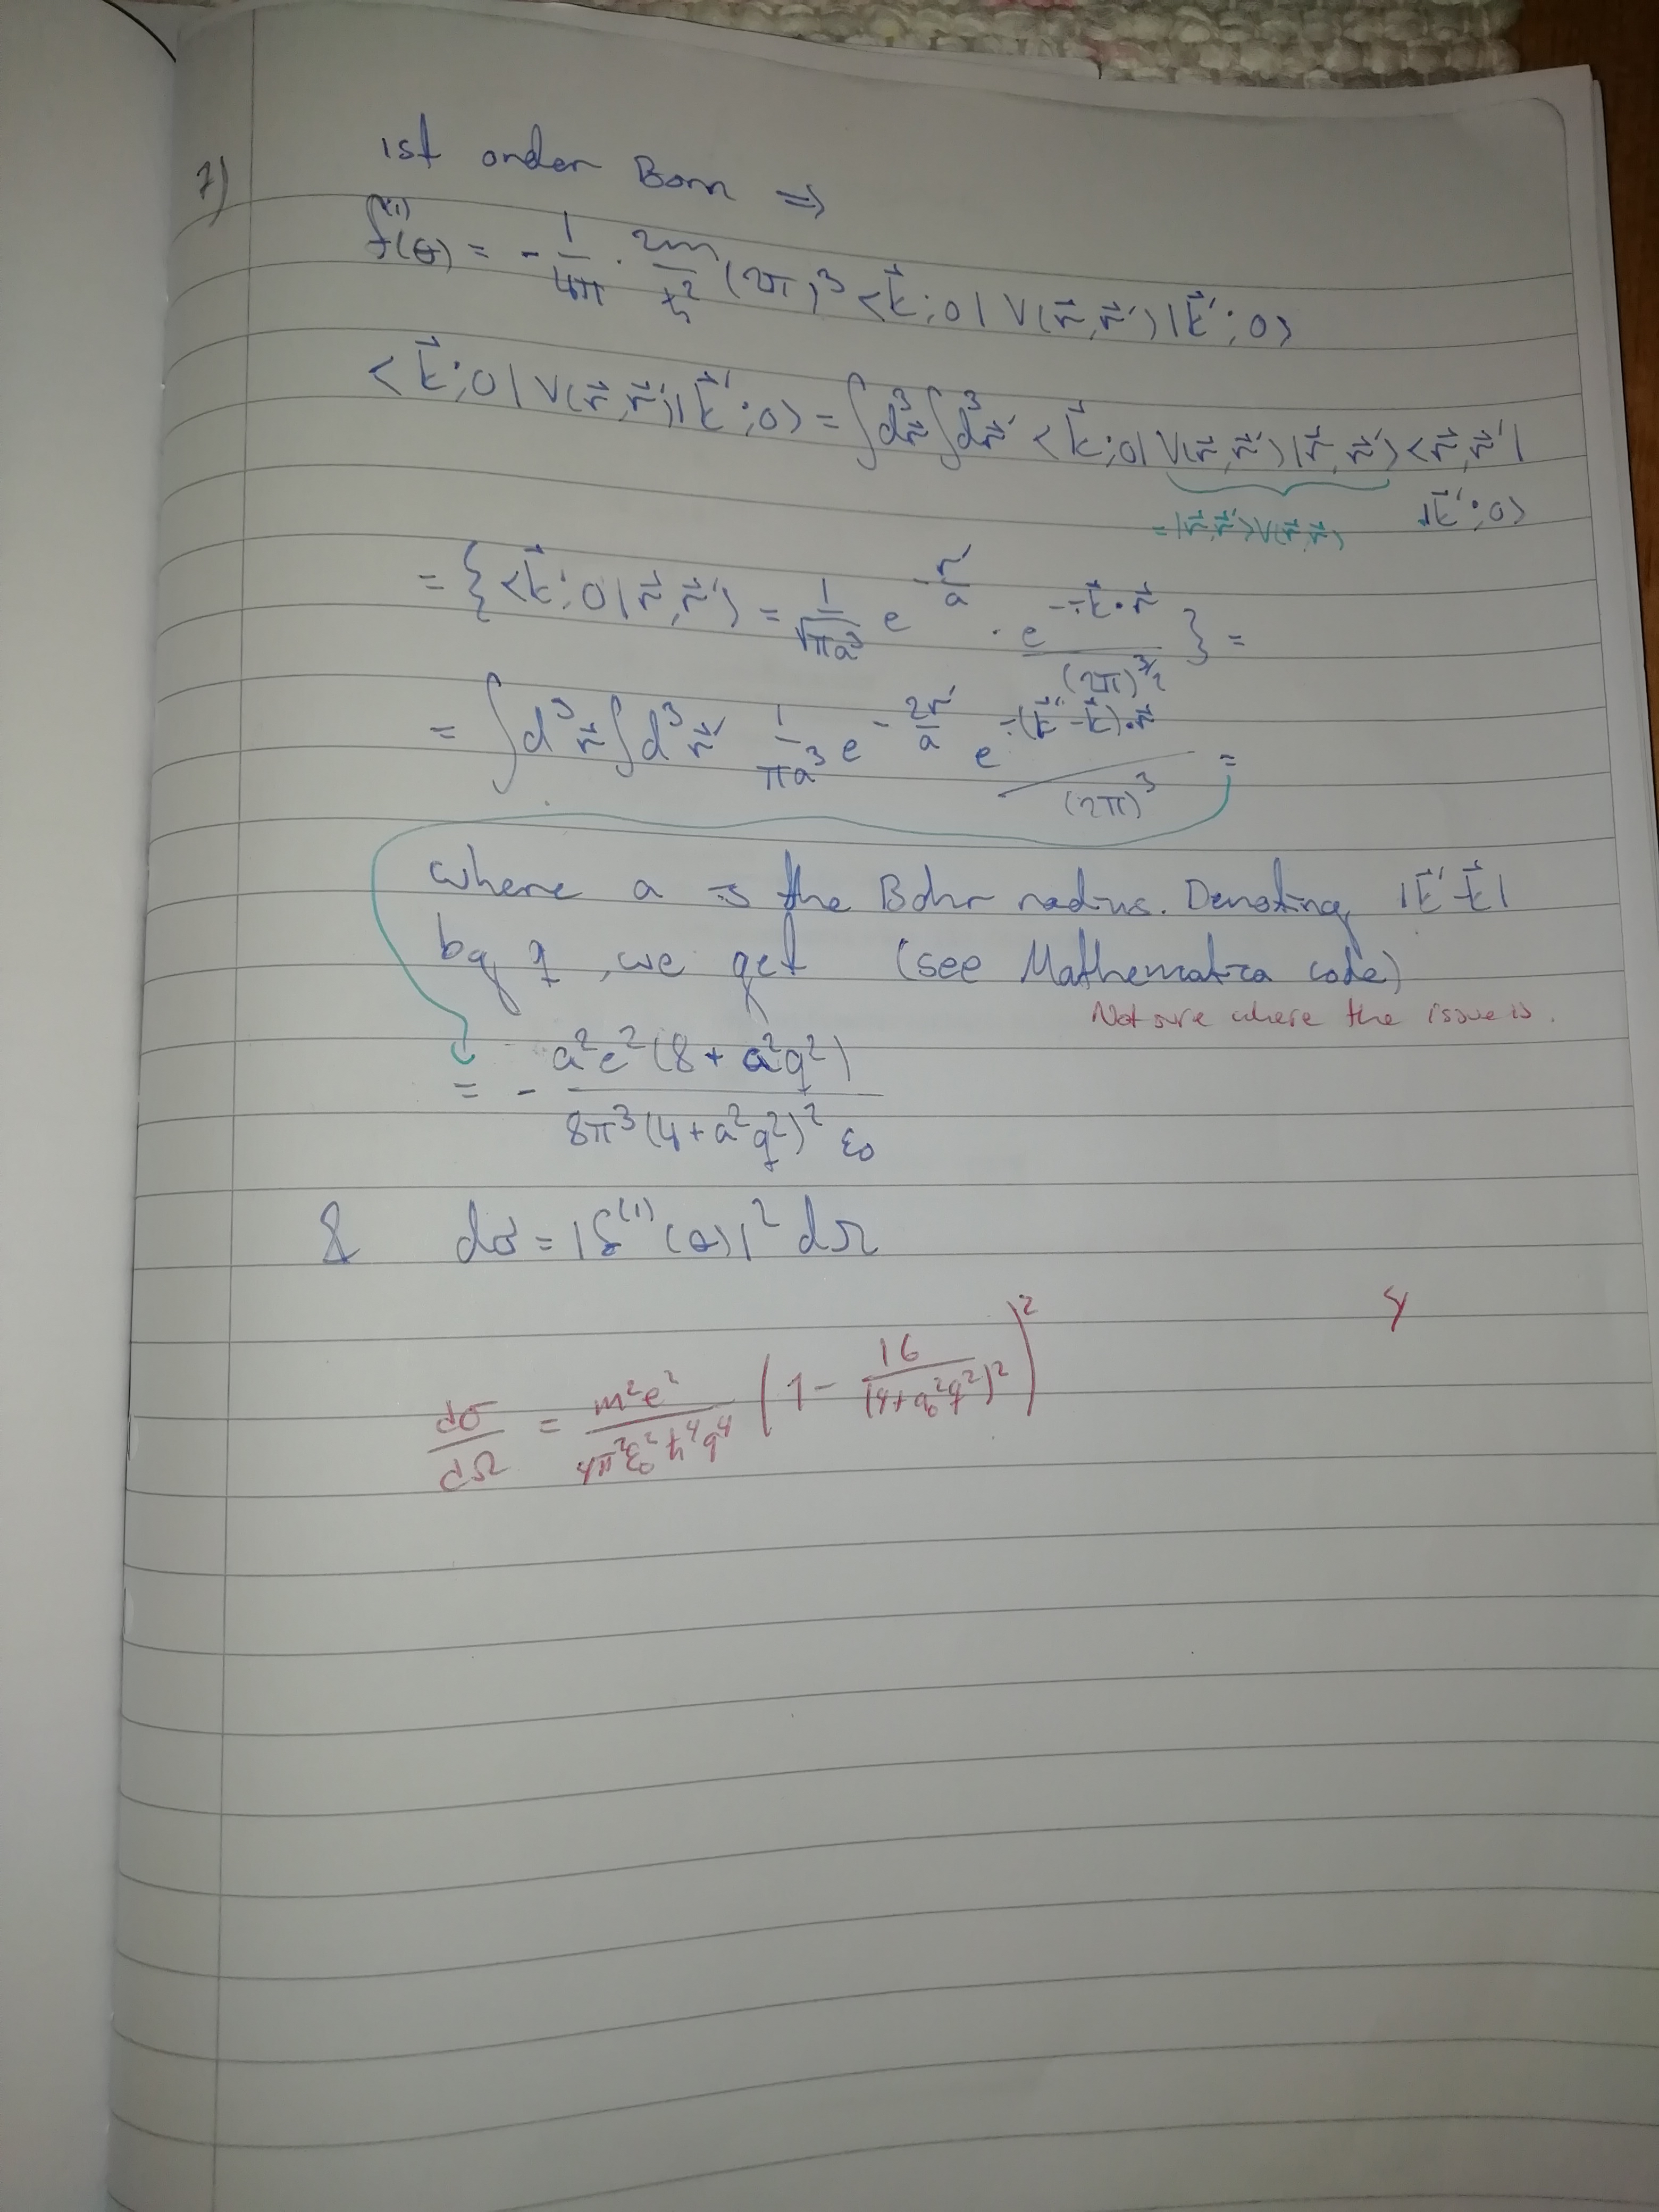 7)
1st order Born ⇒
f⁽¹⁾(θ) = - 1/4π · 2m/ħ² (2π)³ <k⃗;0| V(r⃗,r⃗') |k⃗';0>
<k⃗;0| V(r⃗,r⃗') |k⃗';0> = ∫d³r⃗ ∫d³r⃗' <k⃗;0| V(r⃗,r⃗') |r⃗,r⃗'> <r⃗,r⃗'|
= |r⃗,r⃗'> V(r⃗,r⃗') |k⃗';0>
= { <k⃗;0|r⃗,r⃗'> = 1/√(πa³) e^(-r'/a) · e^(-ik⃗·r⃗)/(2π)^(3/2) } =
= ∫d³r⃗ ∫d³r⃗' 1/(πa³) e^(-2r'/a) e^(i(k⃗'-k⃗)·r⃗)/(2π)³ =
where a is the Bohr radius. Denoting |k⃗'-k⃗|
by q, we get (see Mathematica code)
Not sure where the issue is.
= - a²e²(8 + a²q²) / 8π³(4+a²q²)² ε₀
& dσ = |f⁽¹⁾(θ)|² dΩ
dσ/dΩ = m²e²/(4π²ε₀²ħ⁴q⁴) (1 - 16/(4+a₀²q²)²)²